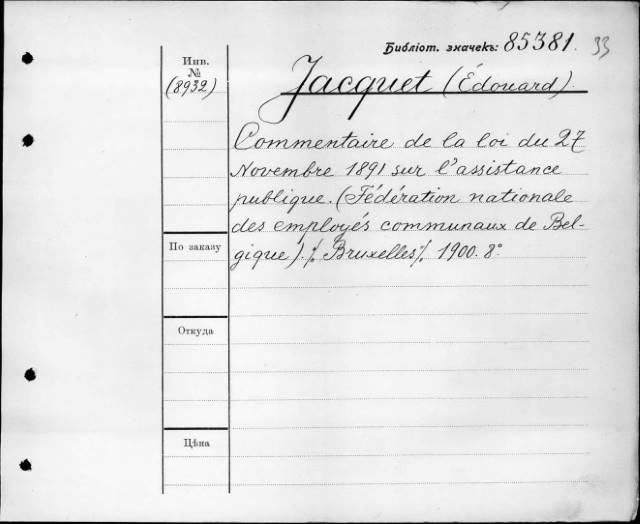 Библіот. значекъ: 85381. 33
Инв.
№
(8932)
Jacquet (Édouard).
Commentaire de la loi du 27
Novembre 1891 sur l'assistance
publique. (Fédération nationale
des employés communaux de Bel-
gique). /. Bruxelles /. 1900. 8°
По заказу
Откуда
Цѣна